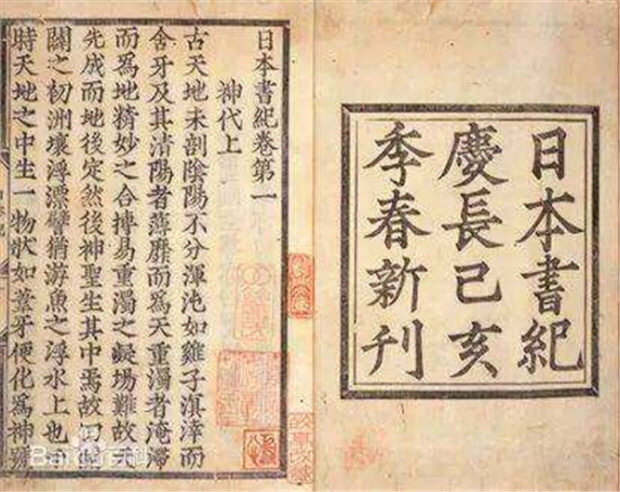 日本書紀
慶長己亥
季春新刊
日本書紀卷第一
神代上
古天地未剖陰陽不分渾沌如雞子溟涬而
含牙及其清陽者薄靡而爲天重濁者淹滯
而爲地精妙之合搏易重濁之凝場難故天
先成而地後定然後神聖生其中焉故曰開
闢之初洲壤浮漂譬猶游魚之浮水上也于
時天地之中生一物狀如葦牙便化爲神號
Baidu百科